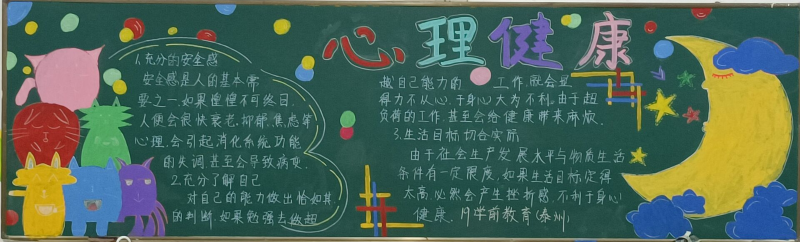 心理健康
1.充分的安全感
安全感是人的基本需
要之一,如果惶惶不可终日,
人便会很快衰老.抑郁.焦虑等
心理,会引起消化系统功能
的失调甚至会导致病变.
2.充分了解自己
对自己的能力做出恰如其
的判断,如果勉强去做超
越自己能力的 工作,就会显
得力不从心,于身心大为不利,由于超
负荷的工作,甚至会给健康带来麻烦.
3.生活目标切合实际
由于社会生产发展水平与物质生活
条件有一定限度,如果生活目标定得
太高,必然会产生挫折感,不利于身心
健康、 学前教育(泰州)